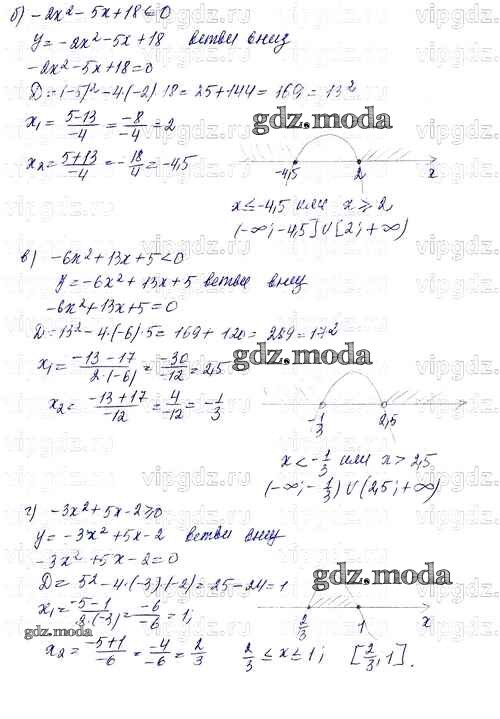 б) -2x² - 5x + 18 ≤ 0
y = -2x² - 5x + 18 ветви вниз
-2x² - 5x + 18 = 0
D = (-5)² - 4·(-2)·18 = 25 + 144 = 169 = 13²
x₁ = (5-13)/-4 = -8/-4 = 2
gdz.moda
x₂ = (5+13)/-4 = -18/4 = -4,5
-4,5 2 x
x ≤ -4,5 или x ≥ 2,
(-∞; -4,5] ∪ [2; +∞)
в) -6x² + 13x + 5 < 0
y = -6x² + 13x + 5 ветви вниз
-6x² + 13x + 5 = 0
D = 13² - 4·(-6)·5 = 169 + 120 = 289 = 17²
x₁ = (-13-17)/(2·(-6)) = -30/-12 = 2,5
gdz.moda
x₂ = (-13+17)/-12 = 4/-12 = -1/3
-1/3 2,5
x < -1/3 или x > 2,5
(-∞; -1/3) ∪ (2,5; +∞)
г) -3x² + 5x - 2 ≥ 0
y = -3x² + 5x - 2 ветви вниз
-3x² + 5x - 2 = 0
D = 5² - 4·(-3)·(-2) = 25 - 24 = 1
gdz.moda
x₁ = (-5-1)/(2·(-3)) = -6/-6 = 1;
gdz.moda
2/3 1 x
x₂ = (-5+1)/-6 = -4/-6 = 2/3
2/3 ≤ x ≤ 1; [2/3, 1].
vipgdz.ru